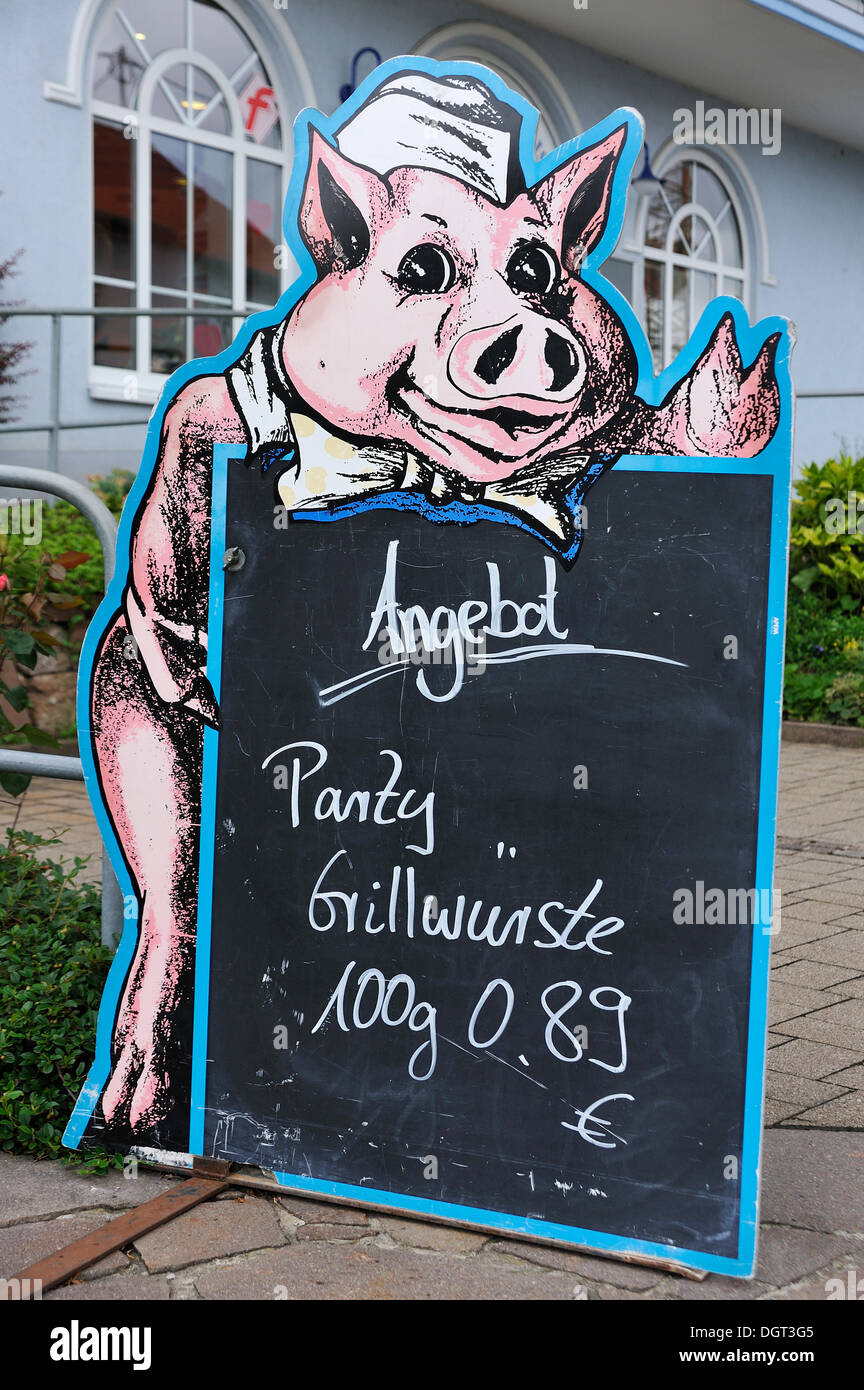 Angebot
Party
Grillwürste
100g 0.89
€
f
alamy
Image ID: DGT3G5
www.alamy.com